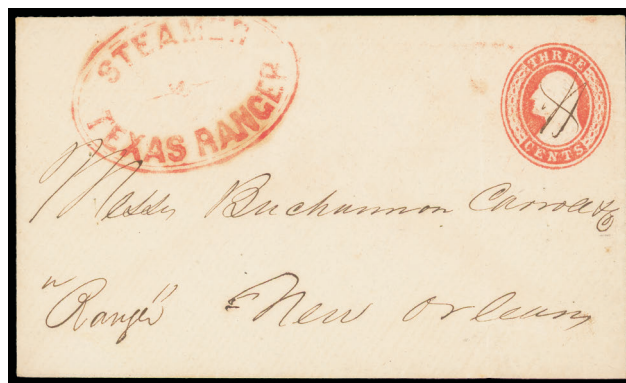 STEAMER
TEXAS RANGER
THREE
CENTS
Messrs Buchannon Carroll & Co
"Ranger" New Orleans